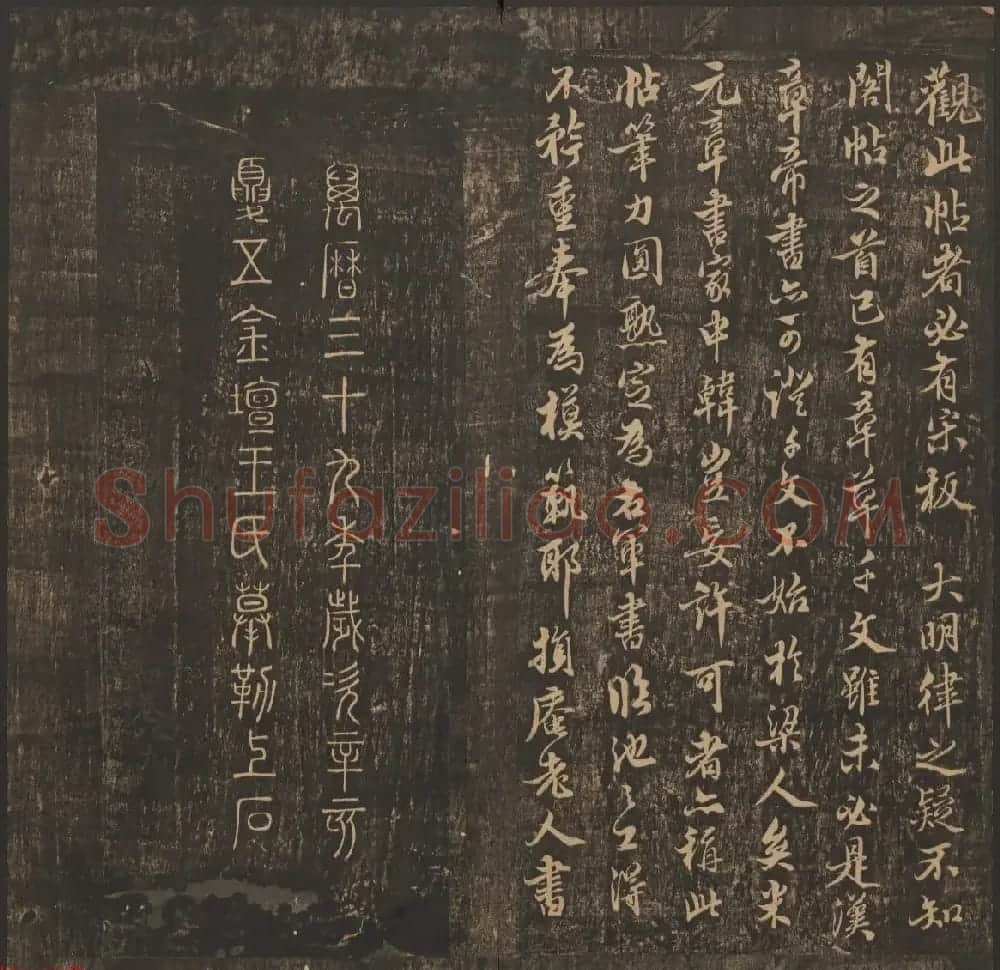 觀此帖者必有宋板 大明律之疑不知
閣帖之首已有章草千文雖未必是漢
章帝書亦可證千文不始於梁人矣米
元章書家申韓豈妄許可者亦稱此
帖筆力圓熟定為右軍書臨池之工得
不矜重奉為模範耶損庵老人書
萬曆三十九年歲次辛亥
夏五金壇王氏摹勒上石
Shufaziliao.COM